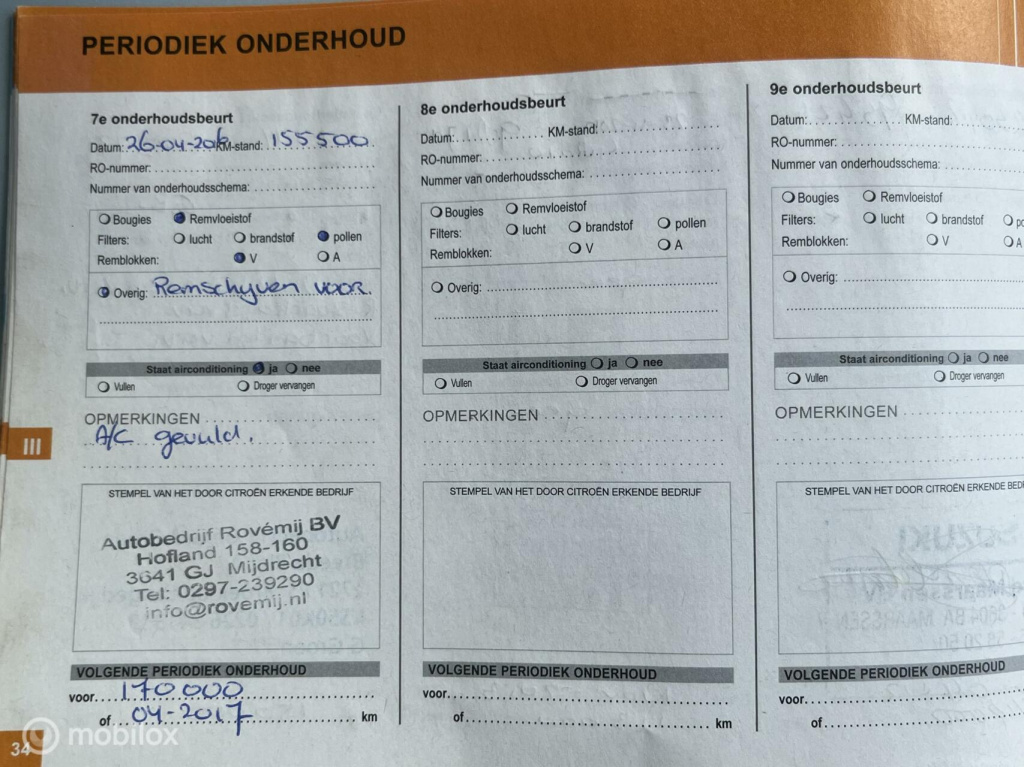 PERIODIEK ONDERHOUD
7e onderhoudsbeurt
Datum: 26-04-2016 KM-stand: 155500
RO-nummer:
Nummer van onderhoudsschema:
Bougies Remvloeistof
Filters: lucht brandstof pollen
Remblokken: V A
Overig: Remschyven voor.
Staat airconditioning ja nee
Vullen Droger vervangen
OPMERKINGEN
A/C gevuld.
STEMPEL VAN HET DOOR CITROËN ERKENDE BEDRIJF
Autobedrijf Rovémij BV
Hofland 158-160
3641 GJ Mijdrecht
Tel: 0297-239290
info@rovemij.nl
VOLGENDE PERIODIEK ONDERHOUD
voor 170000
of 04-2017 km
8e onderhoudsbeurt
Datum: KM-stand:
RO-nummer:
Nummer van onderhoudsschema:
Bougies Remvloeistof
Filters: lucht brandstof pollen
Remblokken: V A
Overig:
Staat airconditioning ja nee
Vullen Droger vervangen
OPMERKINGEN
STEMPEL VAN HET DOOR CITROËN ERKENDE BEDRIJF
VOLGENDE PERIODIEK ONDERHOUD
voor
of km
9e onderhoudsbeurt
Datum: KM-stand:
RO-nummer:
Nummer van onderhoudsschema:
Bougies Remvloeistof
Filters: lucht brandstof
Remblokken: V A
Overig:
Staat airconditioning ja nee
Vullen Droger vervangen
OPMERKINGEN
STEMPEL VAN HET DOOR CITROËN ERKENDE
VOLGENDE PERIODIEK ONDERHOUD
voor
of
III
34
mobilox